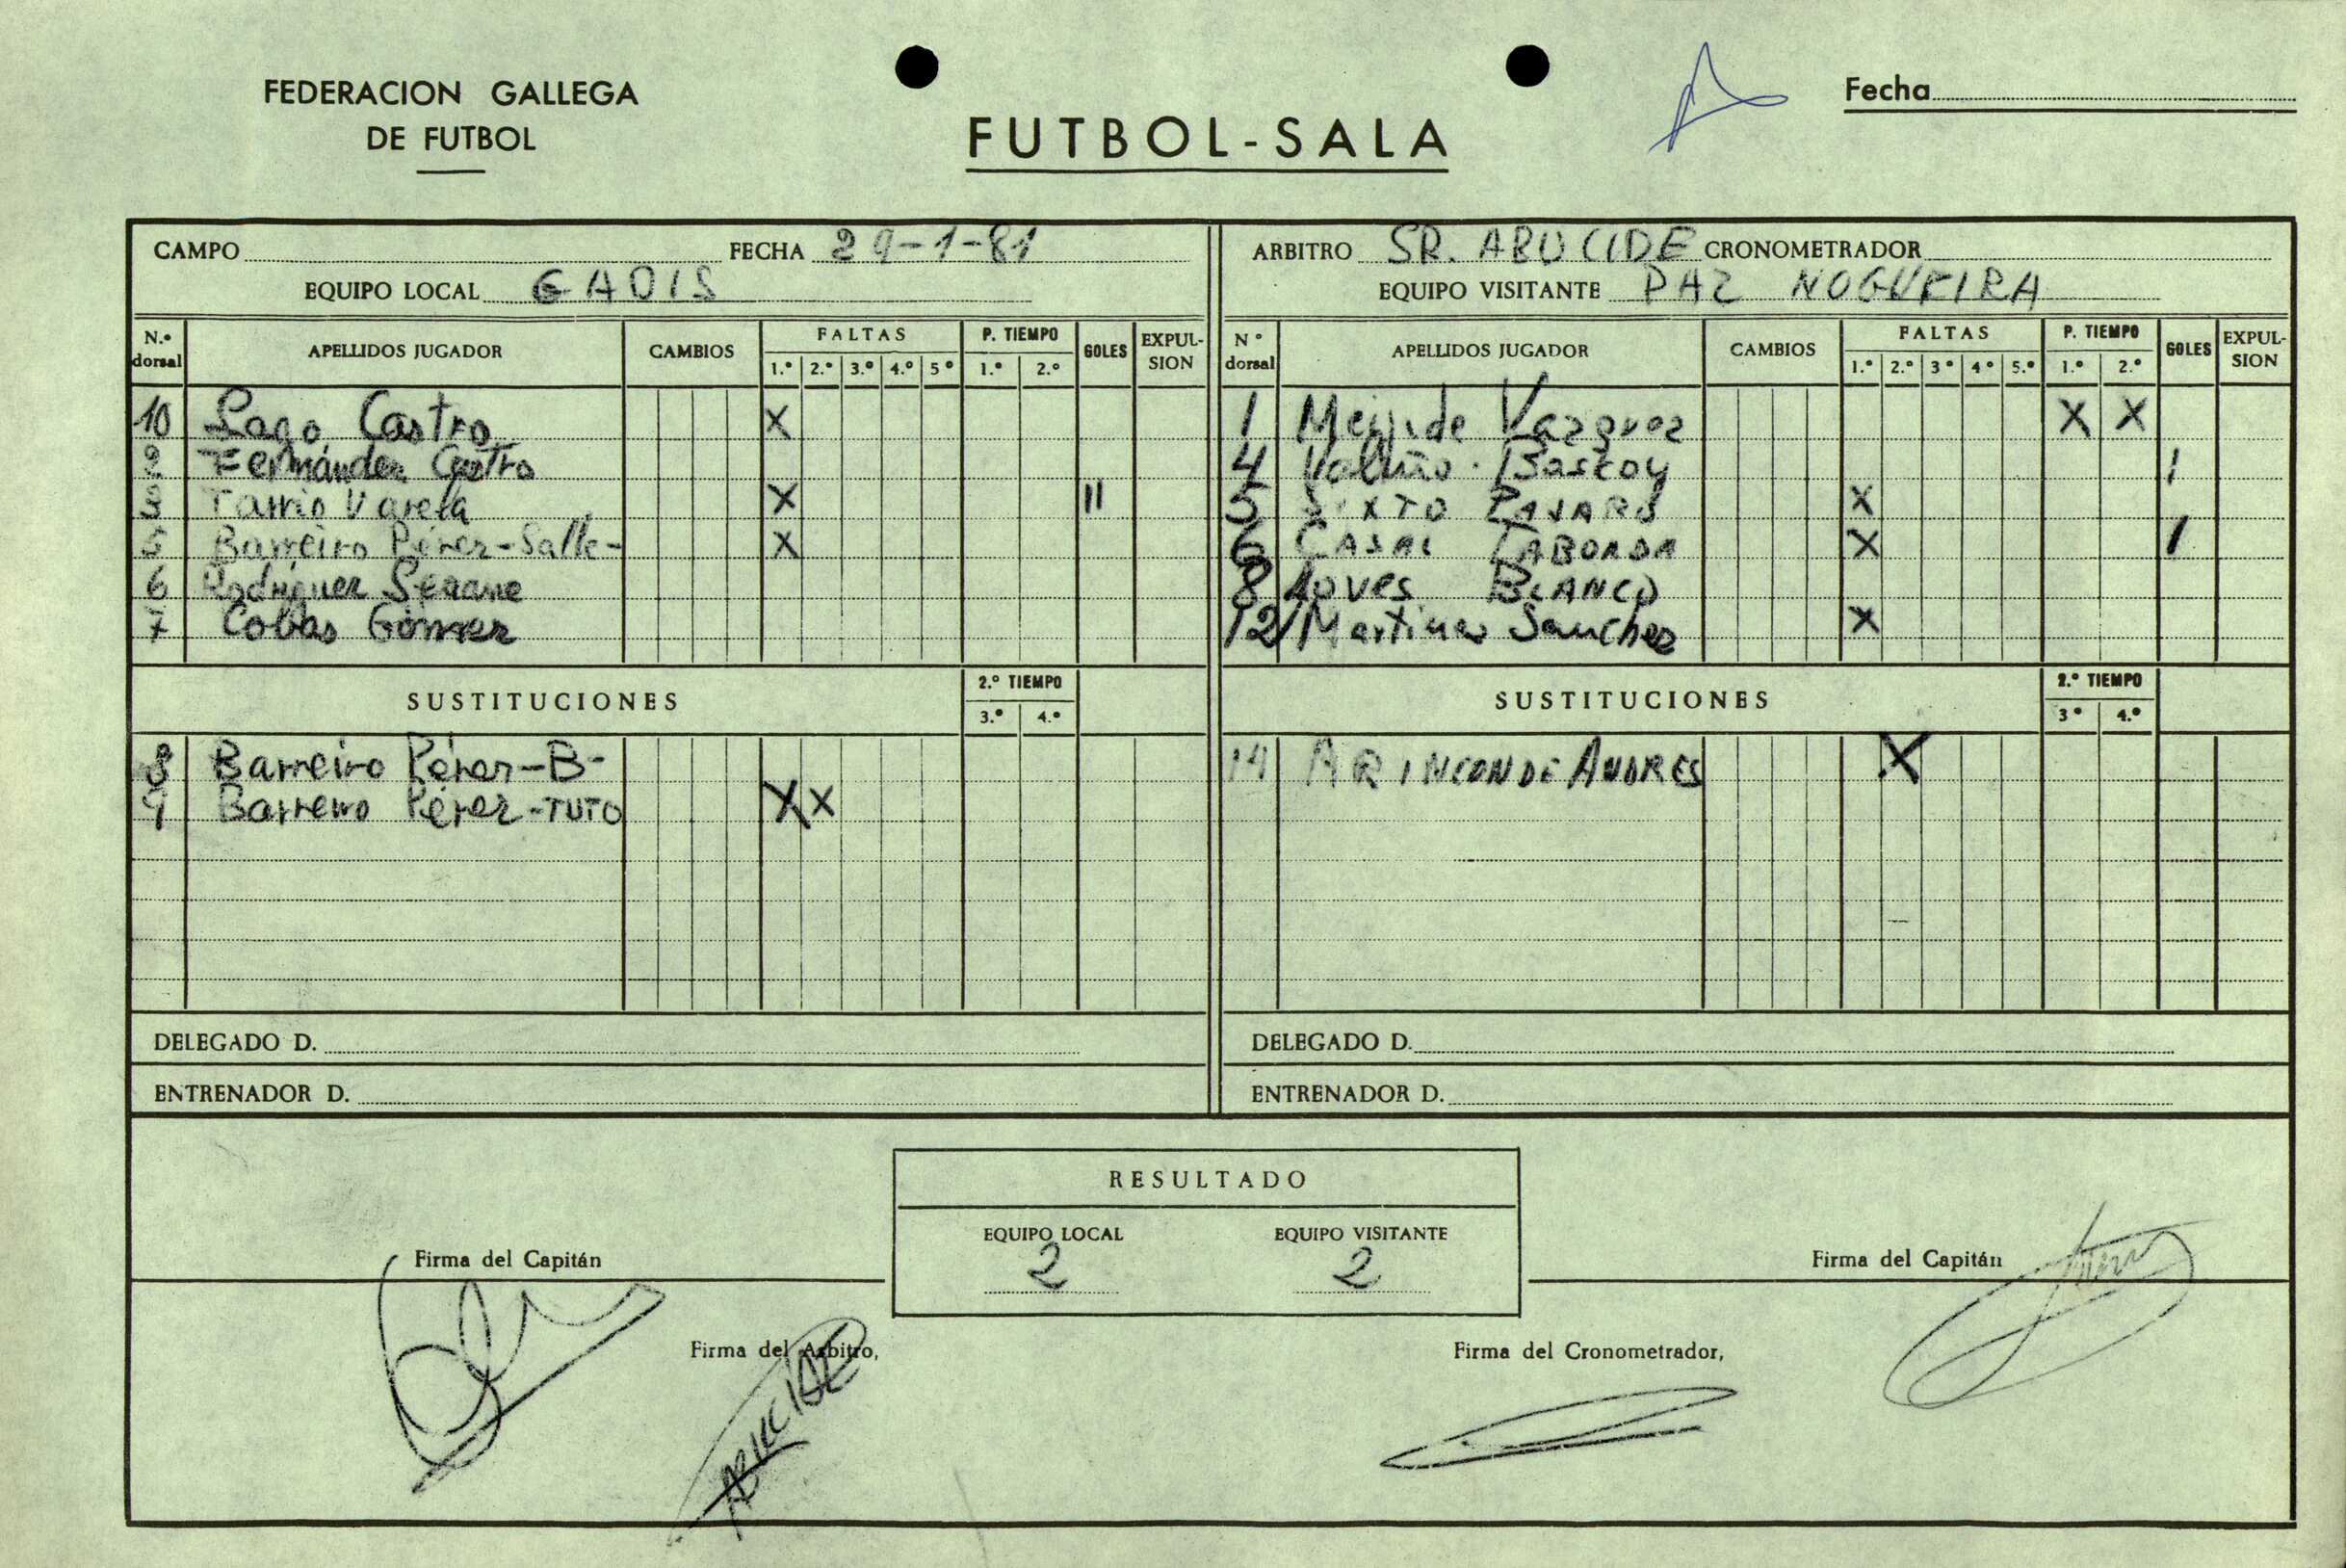 FEDERACION GALLEGA
DE FUTBOL
FUTBOL-SALA
Fecha
CAMPO FECHA 29-1-81
EQUIPO LOCAL GADIS
N.º dorsal APELLIDOS JUGADOR CAMBIOS FALTAS P. TIEMPO GOLES EXPULSION
1.º 2.º 3.º 4.º 5º 1.º 2.º
10 Lago Castro X
2 Fernández Castro
3 Tarrio Varela X II
5 Barreiro Pérez-Salle- X
6 Rodríguez Seoane
7 Cobas Gómez
SUSTITUCIONES 2.º TIEMPO
3.º 4.º
8 Barreiro Pérez-B-
9 Barreiro Pérez-TUTO X X
DELEGADO D.
ENTRENADOR D.
ARBITRO SR. ABUCIDE CRONOMETRADOR
EQUIPO VISITANTE PAZ NOGUEIRA
Nº dorsal APELLIDOS JUGADOR CAMBIOS FALTAS P. TIEMPO GOLES EXPULSION
1.º 2.º 3º 4º 5.º 1.º 2.º
1 Meijide Vazquez X X
4 Bascoy I
5 SIXTO PAJARO X
6 CASAL TABORDA X I
8 BLANCO
12 Martinez Sanchez X
SUSTITUCIONES 2.º TIEMPO
3º 4.º
14 RINCON DE ANDRES X
DELEGADO D.
ENTRENADOR D.
RESULTADO
EQUIPO LOCAL EQUIPO VISITANTE
2 2
Firma del Capitán
Firma del Capitán
Firma del Arbitro,
ABUCIDE
Firma del Cronometrador,